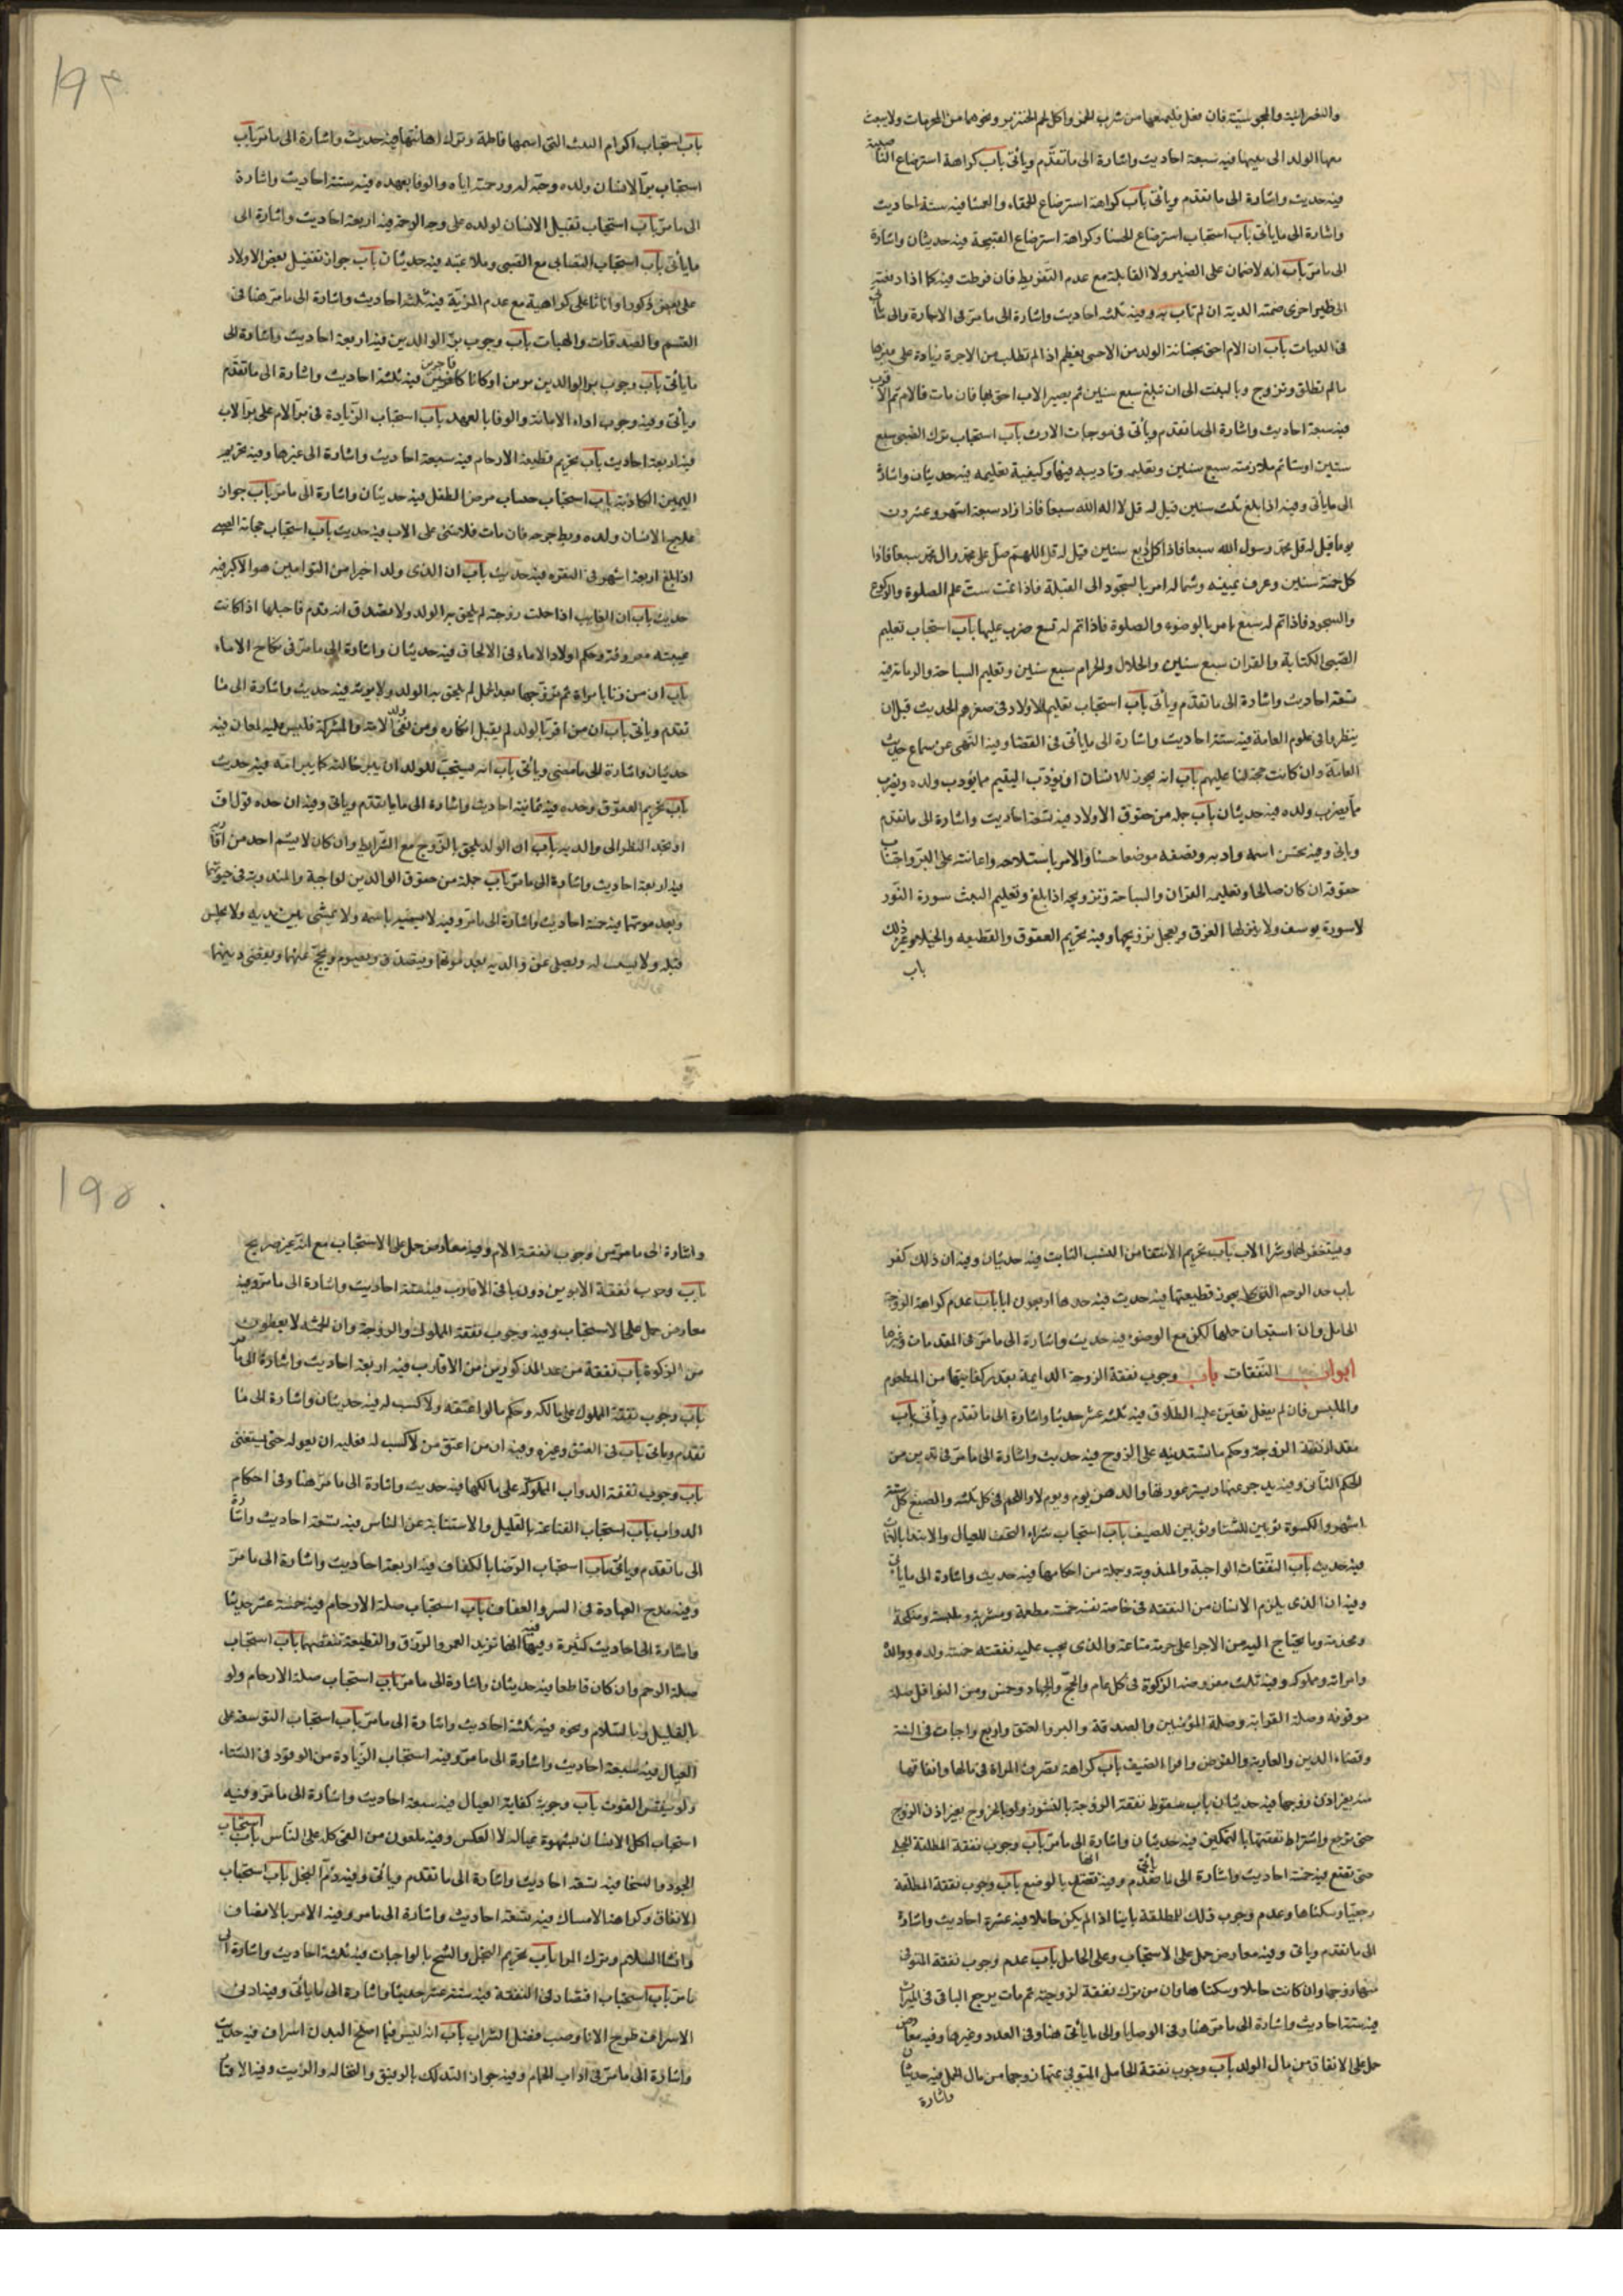 والنصرانية والمجوسية فان فعل فليمنعها من شرب الخمر واكل لحم الخنزير ونحوهما من المحرمات ولا يبعث
معها الولد الى بيتها فيه سبعة احاديث واشارة الى ما تقدّم ويأتى باب كراهة استرضاع الناصبية
فيه حديث واشارة الى ما تقدم ويأتى باب كراهة استرضاع الحمقاء والعمشا فيه ستة احاديث
واشارة الى ما يأتى باب استحباب استرضاع الحسنا وكراهة استرضاع القبيحة فيه حديثان واشارة
الى ما مرّ باب انه لا ضمان على الضير ولا القابلة مع عدم التفريط فان فرطت فيه كا اذا دفعته
الى ظير اخرى ضمنت الدية ان لم تأت به وفيه ثلثة احاديث واشارة الى ما مرّ فى الاجارة والى ما يأتى
فى الديات باب ان الام احق بحضانة الولد من الاب حتى يفطم اذا لم تطلب من الاجرة زيادة على غيرها
ما لم تطلق وتزوج وبالبنت الى ان تبلغ سبع سنين ثم يصير الاب احق بها فان مات فالام ثم الاقرب
فيه سبعة احاديث واشارة الى ما تقدم ويأتى فى موجبات الارث باب استحباب ترك الصبى سبع
سنين اوستا ثم ملازمته سبع سنين وتعليمه وتاديبه فيها وكيفية تعليمه فيه حديثان واشارة
الى ما يأتى وفيه اذا بلغ ثلث سنين قيل له قل لا اله الا الله سبعا فاذا زاد سبعة اشهر وعشرون
يوما قيل له قل محمد رسول الله سبعا فاذا كل اربع سنين قيل له قل اللهم صل على محمد وال محمد سبعا فاذا
كل خمسة سنين وعرف يمينه وشماله امر بالسجود الى القبلة فاذا تمت ست علم الصلوة والركوع
والسجود فاذا تم له سبع امر بالوضوء والصلوة فاذا تم له تسع ضرب عليها باب استحباب تعليم
الصبى الكتابة والقران سبع سنين والحلال والحرام سبع سنين وتعليم السباحة والرماية فيه
تسعة احاديث واشارة الى ما تقدّم ويأتى باب استحباب تعليم الاولاد فى صغرهم الحديث قبل ان
ينظروا فى علوم العامة فيه ستة احاديث واشارة الى ما يأتى فى القضا وفيه النهى عن سماع حديث
العامّة وان كانت حجة لنا عليهم باب انه يجوز للانسان ان يؤدّب اليتيم مما يؤدب ولده ويضرب
مما يضرب ولده فيه حديثان باب جملة من حقوق الاولاد فيه تسعة احاديث واشارة الى ما تقدم
وياتى وفيه يحسن اسمه وادبه ويضعه موضعا حسنا والامر باستلاحه واعانته على البر واجتناب
حقوقه ان كان صالحا وتعليمه القران والسباحة وتزويجه اذا بلغ وتعليم البنت سورة النور
لا سورة يوسف ولا ينزلها الغرف ويعجل تزويجها وفيه تحريم العقوق والقطيعه والخيلا وغير ذلك
باب
١٩٤
باب استحباب اكرام البنت التى اسمها فاطمة وترك اهانتها فيه حديث واشارة الى ما مرّ باب
استحباب برّ الانسان ولده وحبّه له ورحمته اياه والوفا بعهده فيه ستة احاديث واشارة
الى ما مرّ باب استحباب تقبيل الانسان لولده على وجه الرحمة فيه اربعة احاديث واشارة الى
ما يأتى باب استحباب التصابى مع الصبى وملاعبته فيه حديثان باب جواز تفضيل بعض الاولاد
على بعض ذكورا واناثا على كراهية مع عدم المزيّة فيه ثلثة احاديث واشارة الى ما مرّ هنا فى
القسم والصدقات والهبات باب وجوب برّ الوالدين فيه اربعة احاديث واشارة الى
ما يأتى باب وجوب بر الوالدين مومنين او كانا كافرين فاجرين فيه ثلثة احاديث واشارة الى ما تقدّم
ويأتى وفيه وجوب اداء الامانة والوفا بالعهد باب استحباب الزيادة فى برّ الام على برّ الاب
فيه اربعة احاديث باب تحريم قطيعة الارحام فيه سبعة احاديث واشارة الى غيرها وفيه تحريم
اليمين الكاذبة باب احتساب مرض الطفل فيه حديثان واشارة الى ما مرّ باب جواز
علاج الانسان ولده وبط جرحه فان مات فلا شئ على الاب فيه حديث باب استحباب حجامة الصبى
اذا بلغ اربعة اشهر فى النقرة فيه حديث باب ان الذى ولد اخيرا من التوامين هو الاكبر فيه
حديث باب ان الغايب اذا حملت زوجته لم يلحق به الولد ولا يصدق انه قدم فاحبلها اذا كانت
غيبته معروفة وحكم اولاد الاماء فى الالحاق فيه حديثان واشارة الى ما مرّ فى نكاح الاماء
باب ان من زنا بامراة ثم تزوّجها بعد الحمل لم يلحق به الولد ولا يورثه فيه حديث واشارة الى ما
تقدم ويأتى باب ان من اقر بالولد لم يقبل انكاره ومن نفى ولد الامة والمشركة فليس عليه لعان فيه
حديثان واشارة الى ما مضى ويأتى باب انه يستحبّ للولد ان يبر خالته كا يبر امّه فيه حديث
باب تحريم العقوق وحده فيه ثمانية احاديث واشارة الى ما تقدم وياتى وفيه ان حده قول اف
او تحديد النظر الى والديه باب ان الولد يلحق بالزوج مع الشرايط وان كان لا يشبه احد من اقاربه
فيه اربعة احاديث واشارة الى ما مرّ باب جملة من حقوق الوالدين الواجبة والمندوبة فى حيوتهما
وبعد موتهما فيه خمسة احاديث واشارة الى ما مرّ وفيه لا يسميه باسمه ولا يمشى بين يديه ولا يجلس
قبله ولا يستسب له ويصلى عن والديه بعد موتهما ويتصدق ويصوم ويحج عنهما ويقضى دينهما
ويستغفر لهما وشرا الاب باب تحريم الانتفا من النسب الثابت فيه حديثان وفيه ان ذلك كفر
باب حد الرحم التى لا يجوز قطيعتها فيه حديث فيه حدها اربعون ابا باب عدم كراهة الزوجة
الحامل وان استبان حملها لكن مع الوضوء فيه حديث واشارة الى ما مرّ فى المقدمات وغيرها
ابواب النفقات باب وجوب نفقة الزوجة الدايمة بقدر كفايتها من المطعوم
والملبس فان لم يفعل تعيّن عليه الطلاق فيه ثلثة عشر حديثا واشارة الى ما تقدم ويأتى باب
مقدار نفقة الزوجة وحكم ما تستدينه على الزوج فيه حديث واشارة الى ما مرّ فى
الحكم الثانى وفيه يسد جوعتها ويستر عورتها والدهن يوم ويوم لا واللحم فى كل ثلثه والصبغ كل ستة
اشهر والكسوة ثوبين للشتا وثوبين للصيف باب استحباب شراء التحف للعيال والابتدا بالبنات
فيه حديث باب النفقات الواجبة والمندوبة وجملة من احكامها فيه حديث واشارة الى ما يأتى
وفيه ان الذى يلزم الانسان من النفقة فى خاصة نفسه خمسة مطعمه ومشربه وملبسه ومنكحه
ومخدمه وما يحتاج اليه من الاجرا على مرمة متاعه والذى يجب عليه نفقته خمسة ولده ووالداه
وامراته ومملوكه وفيه ثلث مفروضه الزكوة فى كل عام والحج والجهاد وخمس ومن النوافل صلة
موفوقه وصلة القرابة وصلة المؤمنين والصدقة والبر والعتق واربع واجبات فى السنة
وقضاء الدين والعارية والقرض واقراء الضيف باب كراهة تصرف المراة فى مالها وانفاقها
منه بغير اذن زوجها فيه حديثان باب سقوط نفقة الزوجة بالنشوز ولو بالخروج بغير اذن الزوج
حتى ترجع واشتراط نفقتها بالتمكين فيه حديثان واشارة الى ما مرّ باب وجوب نفقة المطلقة الحبلى
حتى تضع فيه خمسة احاديث واشارة الى ما تقدّم ويأتى وفيه انها تنقضى بالوضع باب وجوب نفقة المطلقة
رجعيا وسكناها وعدم وجوب ذلك للمطلقة باينا اذا لم يكن حاملا فيه عشرة احاديث واشارة
الى ما تقدم وياتى وفيه معارض حمل على الاستحباب وعلى الحامل باب عدم وجوب نفقة المتوفى
عنها زوجها وان كانت حاملا وسكناها وان من ترك نفقة لزوجته ثم مات يرجع الباقى فى الميراث
فيه ستة احاديث واشارة الى ما مرّ هنا وفى الوصايا والى ما يأتى هنا وفى العدد وغيرها وفيه معارض
حمل على الانفاق من مال الولد باب وجوب نفقة الحامل المتوفى عنها زوجها من مال الحمل فيه حديثان
واشارة
١٩٥
واشارة الى ما مرّ من وجوب نفقة الام وفيه معارض حمل على الاستحباب مع انّه غير صريح
باب وجوب نفقة الابوين دون باقى الاقارب فيه ستة احاديث واشارة الى ما مرّ وفيه
معارض حمل على الاستحباب وفيه وجوب نفقة المملوك والزوجة وان الخمسة لا يعطون
من الزكوة باب نفقة من عدا المذكورين من الاقارب فيه اربعة احاديث واشارة الى ما مرّ
باب وجوب نفقة المملوك على مالكه وحكم ما لو اعتقه ولا كسب له فيه حديثان واشارة الى ما
تقدم وياتى باب فى العتق وغيره وفيه ان من اعتق من لا كسب له فعليه ان يعوله حتى يستغنى
باب وجوب نفقة الدواب المملوكة على مالكها فيه حديث واشارة الى ما مرّ هنا وفى احكام
الدواب باب استحباب القناعة بالقليل والاستغناء به عن الناس فيه تسعة احاديث واشارة
الى ما تقدم ويأتى باب استحباب الرّضا بالكفاف فيه اربعة احاديث واشارة الى ما مرّ
وفيه مدح العبادة فى السر والعفاف باب استحباب صلة الارحام فيه خمسة عشر حديثا
واشارة الى احاديث كثيرة وفيها انها تزيد العمر والرزق والقطيعة تنقصها باب استحباب
صلة الرحم وان كان قاطعا فيه حديثان واشارة الى ما مرّ باب استحباب صلة الارحام ولو
بالقليل وبالسّلام ونحوه فيه ثلثة احاديث واشارة الى ما مرّ باب استحباب التوسعة على
العيال فيه سبعة احاديث واشارة الى ما مرّ وفيه استحباب الزّيادة من الوقود فى الشتاء
ولو بنقص القوت باب وجوب كفاية العيال فيه سبعة احاديث واشارة الى ما مرّ وفيه
استحباب اكل الانسان بشهوة عياله لا العكس وفيه ملعون من القى كله على النّاس باب استحباب
الجود والسخا فيه تسعة احاديث واشارة الى ما تقدم ويأتى وفيه ذمّ البخل باب استحباب
الانفاق وكراهة الامساك فيه تسعة احاديث واشارة الى ما مر وفيه الامر بالانصاف
وافشا السلام وترك المرا باب تحريم البخل والشح بالواجبات فيه ثلثة احاديث واشارة الى
ما مرّ باب استحباب اقتصاد فى النفقة فيه ستة عشر حديثا واشارة الى ما يأتى وفيه ادنى
الاسراف طرح الانا وصب فضل الشراب باب انه ليس فيما اصلح البدن اسراف فيه حديث
واشارة الى ما مرّ فى اداب الحمام وفيه جواز التدلك بالدقيق والنخالة والزيت وفيه